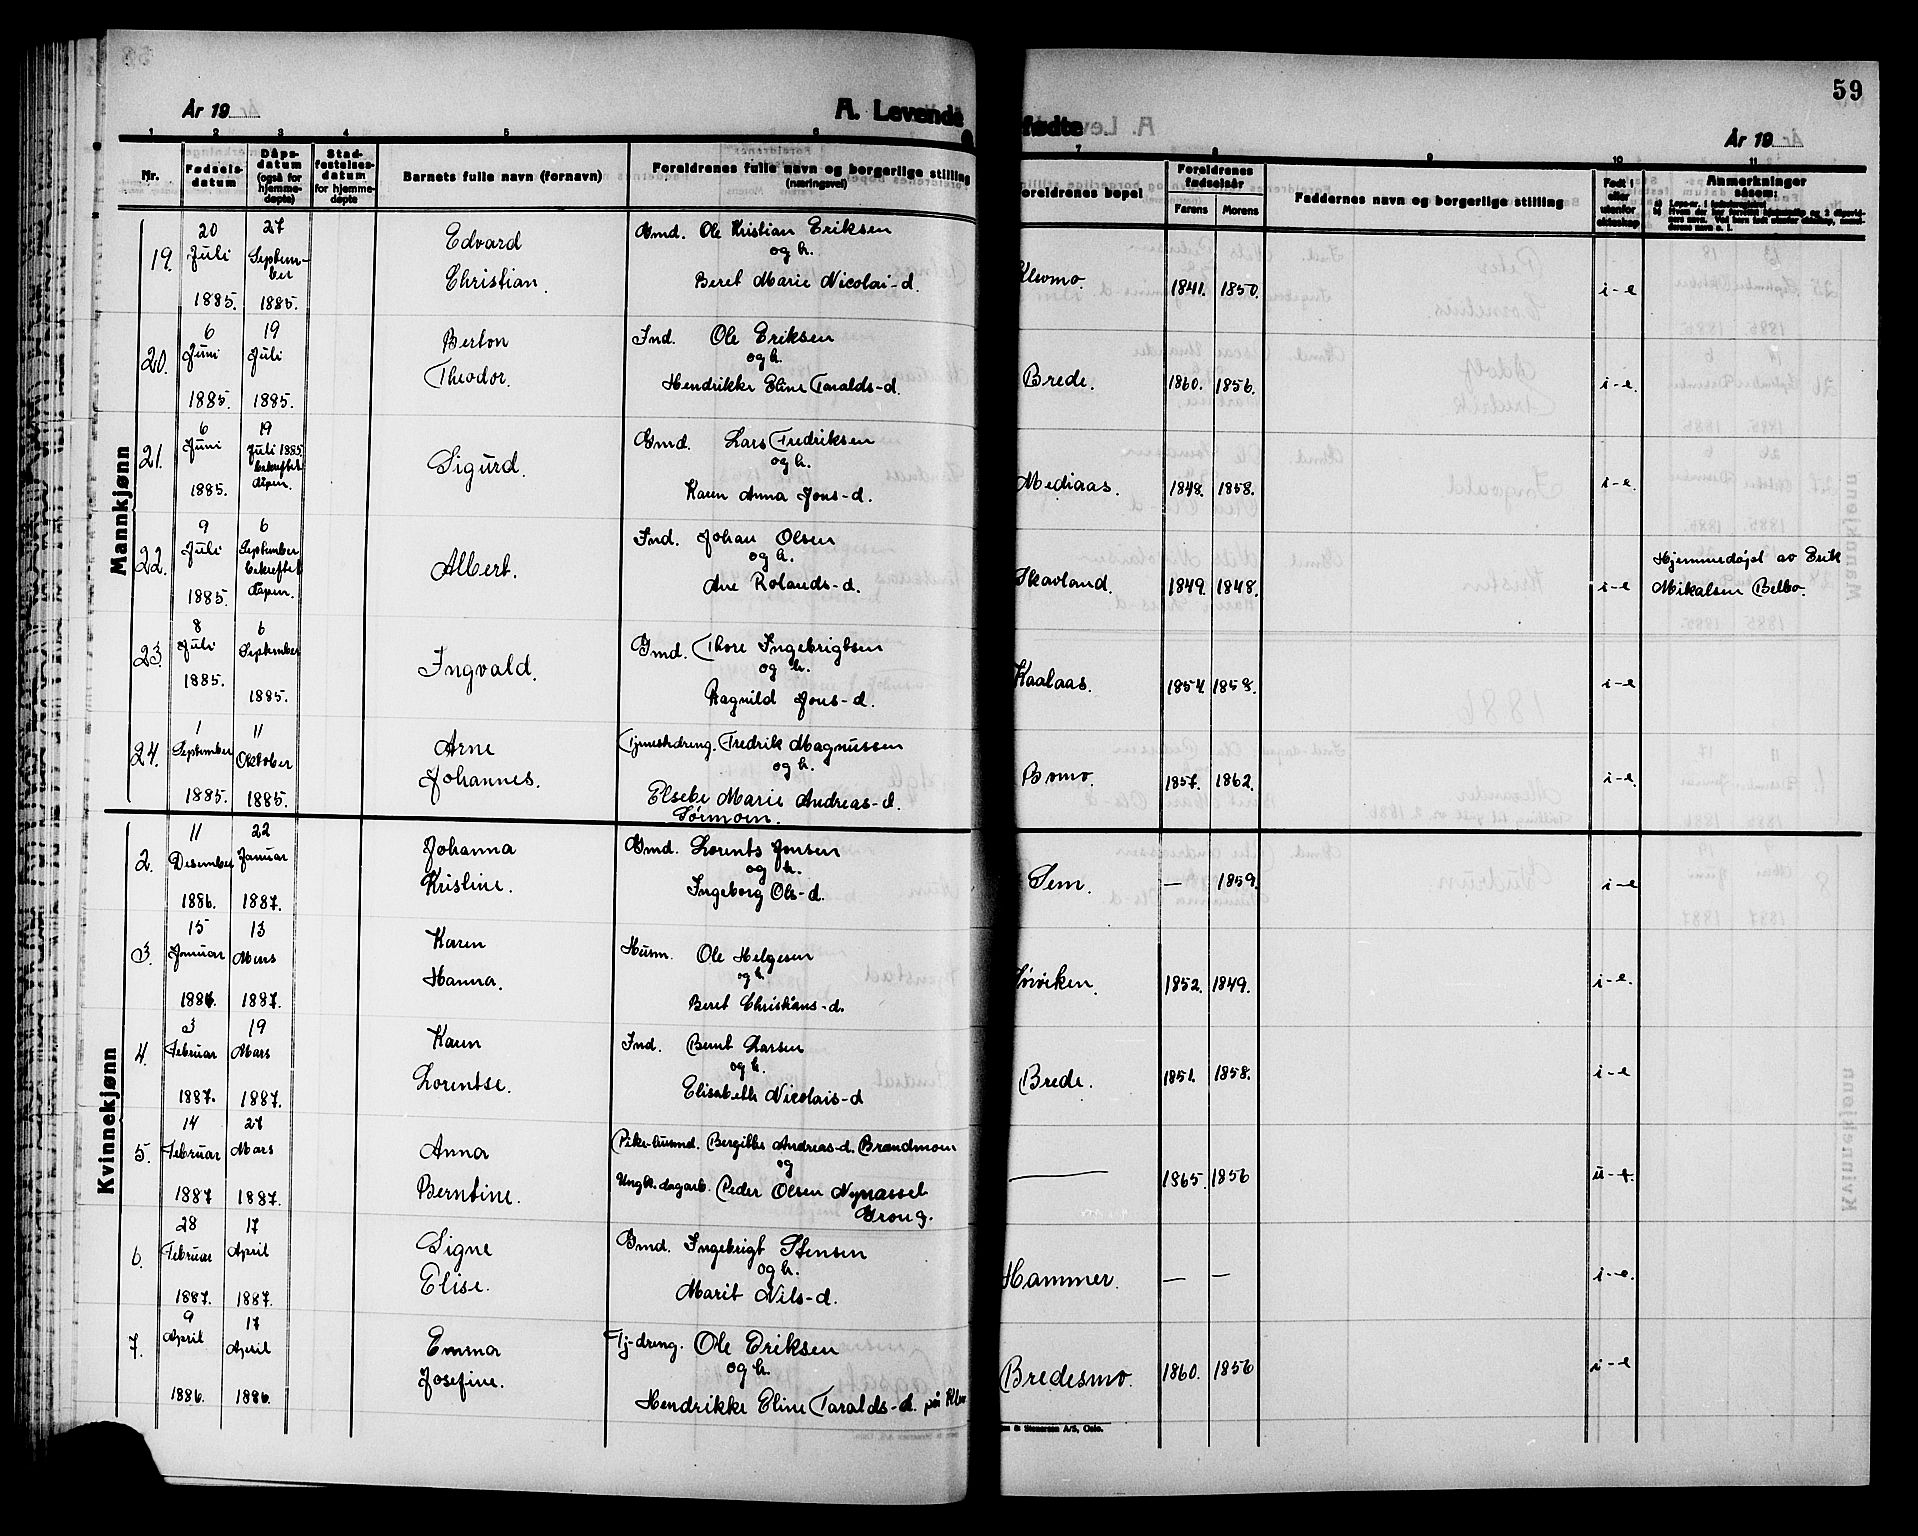 59
År 19
A. Levende
fødte
År 19
1 2 3 4 5 6 7 8 9 10 11
Nr.
Fødsels-
datum
Dåps-
datum
(også for
hjemme-
døpte)
Stad-
festelses-
datum
for hjemme-
døpte
Barnets fulle navn (fornavn)
Foreldrenes fulle navn og borgerlige stilling
(næringsvei)
Foreldrenes bopel
Foreldrenes
fødselsår
Farens Morens
Faddernes navn og borgerlige stilling
Født i
eller
utenfor
ekteskap
Anmerkninger
såsom:
Mannkjønn
19. 20 Juli 1885. 27 Septem-
ber 1885.
Edvard
Christian.
Gmd. Ole Kristian Eriksen
og h.
Beret Marie Nicolai-d.
Klevmo. 1841. 1850. i-e
20. 6 Juni 1885. 19 Juli 1885.
Berton
Theodor.
Ind. Ole Eriksen
og h.
Hendrikke Eline Taralds-d.
Brede. 1860. 1856. i-e
21. 6 Juni 1885. 19 Juli 1885.
bekreftet
dåpen.
Sigurd.
Gmd. Lars Fredriksen
og h.
Karen Anna Jons-d.
Mediaas. 1848. 1858. i-e
22. 9 Juli 1885. 6 September
bekreftet
dåpen.
Albert.
Ind. Johan Olsen
og h.
Ane Rolands-d.
Skavland. 1849. 1848. i-e
Hjemmedøpt av Erik
Mikalsen Belbo.
23. 8 Juli 1885. 6 September 1885.
Ingvald.
Gmd. Thore Ingebrigtsen
og h.
Ragnild Jons-d.
Kaalaas. 1854. 1858. i-e
24. 1 September 1885. 11 Oktober 1885.
Arne
Johannes.
Tjenestedreng. Fredrik Magnussen
og h.
Elsebe Marie Andreas-d.
Sørmoen.
Bomo. 1857. 1862. i-e
Kvinnekjønn
2. 11 Desember 1886. 22 Januar 1887.
Johanna
Kristine.
Gmd. Lorents Jonsen
og h.
Ingeborg Ols-d.
Sem. — 1859. i-e
3. 15 Januar 13 Mars 1887.
Karen
Hanna.
Husm. Ole Helgesen
og h.
Beret Christians-d.
Sørviken. 1852. 1849. i-e.
4. 3 Februar 1887. 19 Mars 1887.
Karen
Lorentse.
Ind. Bernt Larsen
og h.
Elisabeth Nicolais-d
Brede. 1851. 1858. i-e
5. 14 Februar 1887 27 Mars 1887.
Anna
Berntine.
Pike-husmd. Bergitte Andreas-d. Brandmoen
og
Ungk. dagarb. Peder Olsen Nynasset
Grong.
— 1865. 1856 u-e.
6. 28 Februar 1887. 17 April 1887.
Signe
Elise.
Gmd. Ingebrigt Stensen
og h.
Marit Nils-d.
Hammer. — — i-e.
7. 9 April 1886. 17 April 1886.
Emma
Josefine.
Tj-dreng. Ole Eriksen
og h.
Hendrikke Eline Taralds-d. på
Bredesmo. 1860. 1856 i-e
& Stenersen A/S, Oslo.